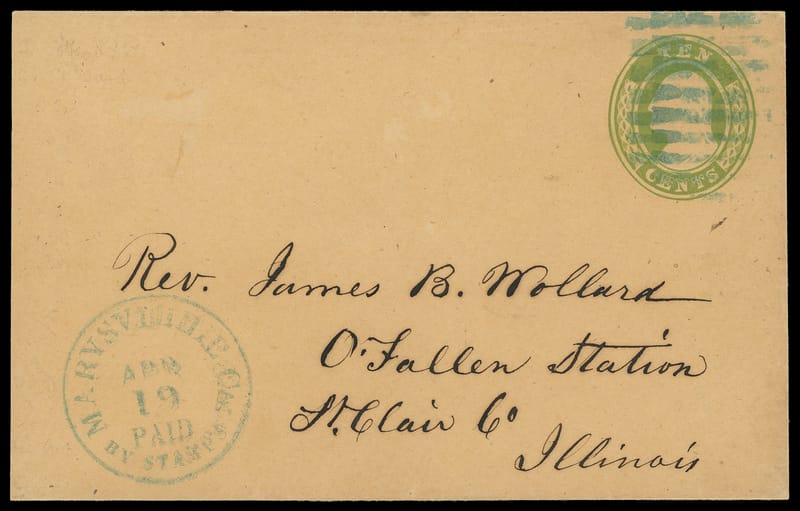 TEN
CENTS
Rev. James B. Wollard
O'Fallen Station
St. Clair Co
Illinois
MARYSVILLE CAL
APR
19
PAID
BY STAMPS